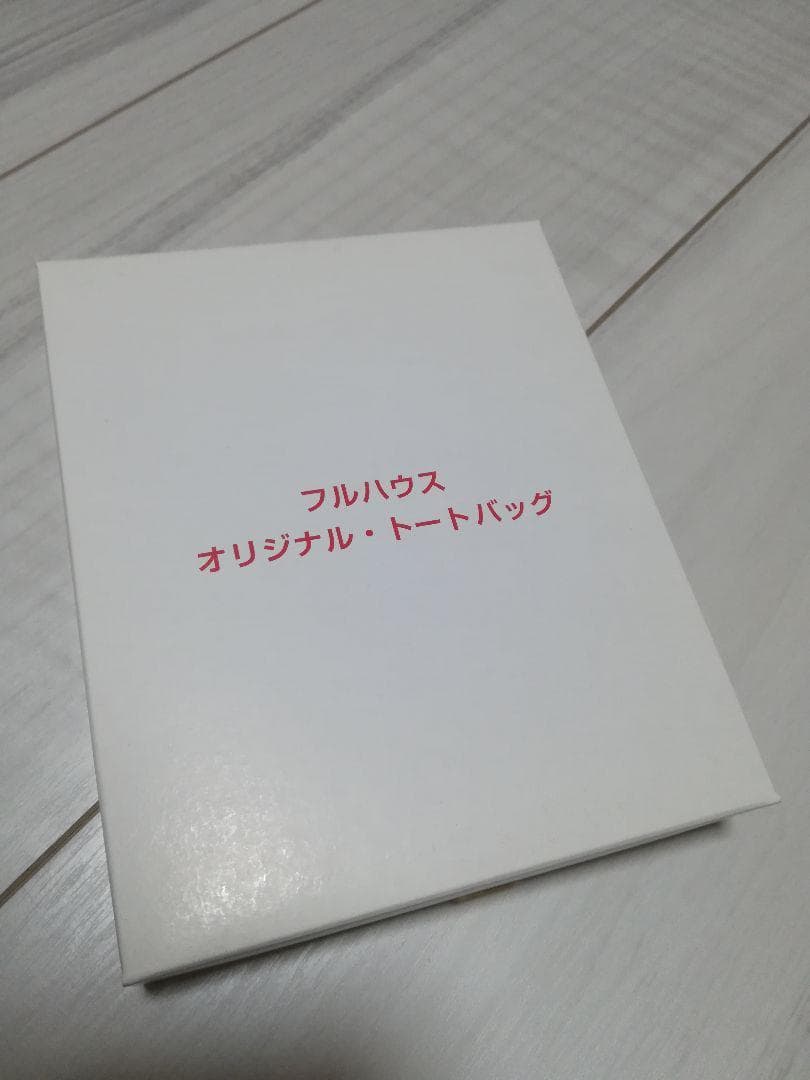 フルハウス
オリジナル・トートバッグ